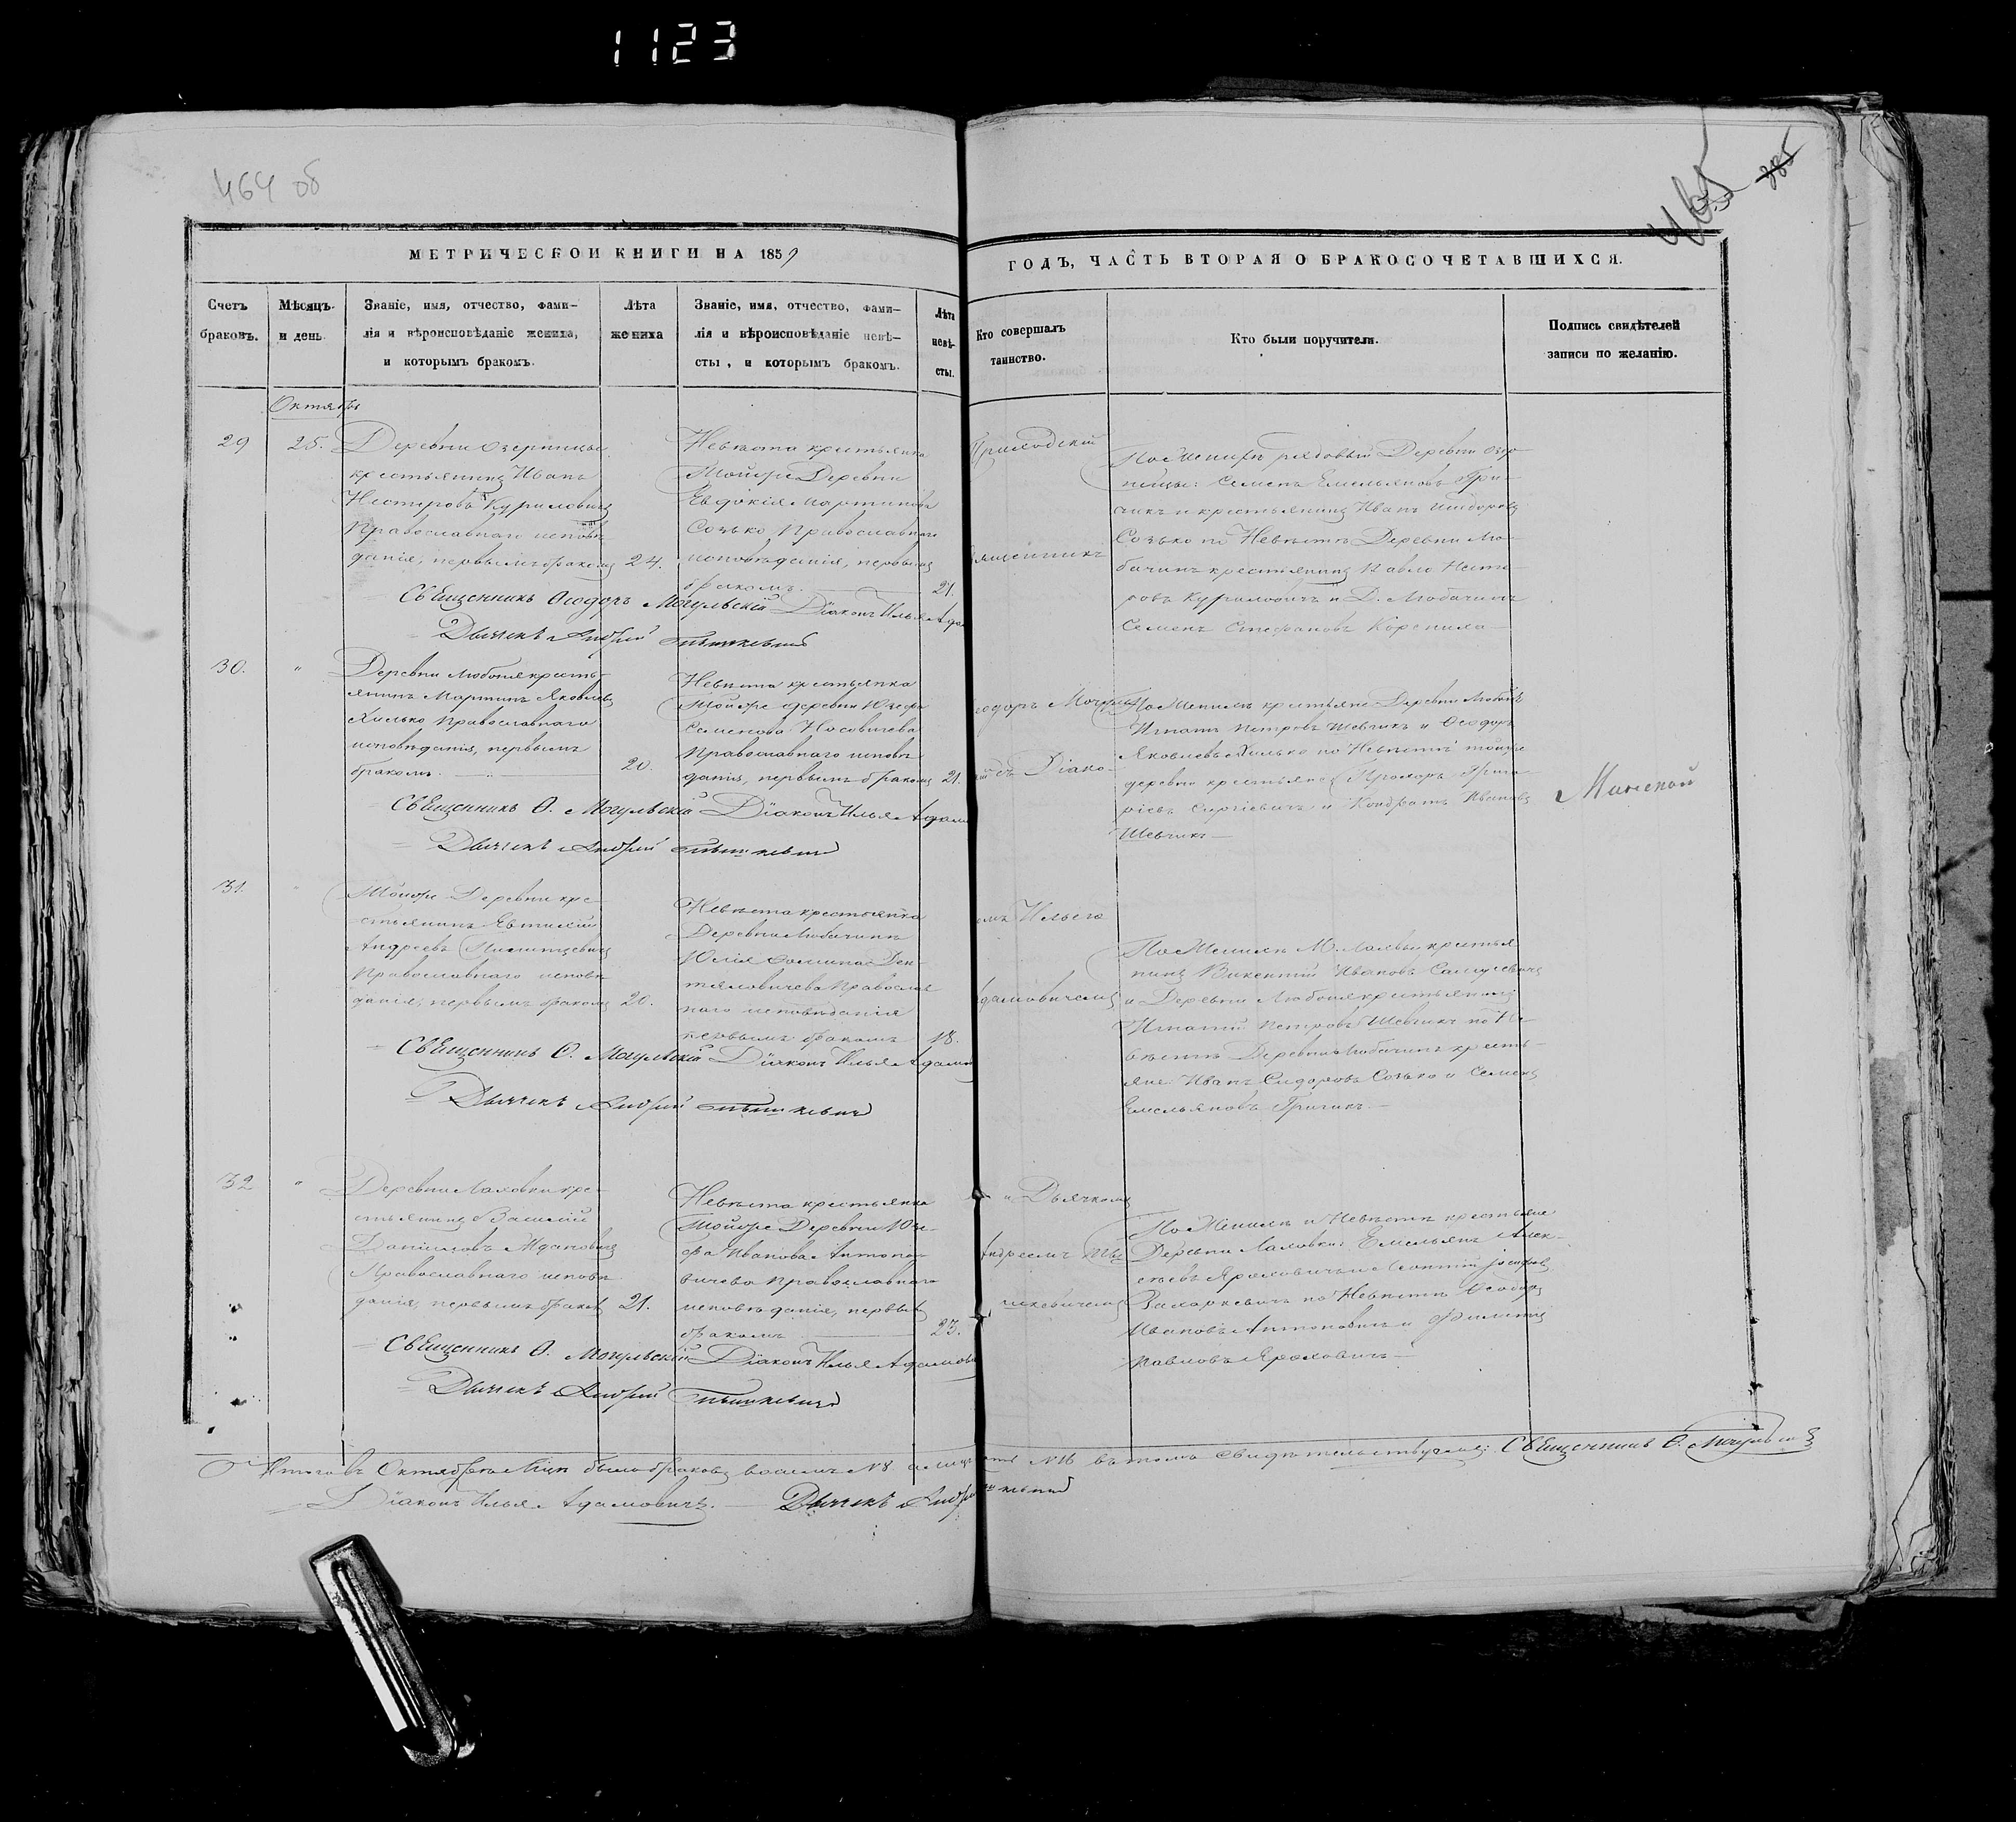 1123
464 об
465
385
МЕТРИЧЕСКОЙ КНИГИ НА 1859
ГОДЪ, ЧАСТЬ ВТОРАЯ О БРАКОСОЧЕТАВШИХСЯ.
Счетъ
браковъ.
Мѣсяцъ
и день.
Званіе, имя, отчество, фами-
лія и вѣроисповѣданіе жениха,
и которымъ бракомъ.
Лѣта
жениха
Званіе, имя, отчество, фами-
лія и вѣроисповѣданіе невѣ-
сты, и которымъ бракомъ.
Лѣта
невѣ-
сты.
Кто совершалъ
таинство.
Кто были поручители.
Подпись свидѣтелей
записи по желанію.
Октябрь
29
25.
Деревни Озерницы
крестьянинъ Иванъ
Нестеровъ Куриловичъ
Православнаго исповѣ
данія, первымъ бракомъ
24.
Невѣста крестьянка
Тойже Деревни
Евдокія Мартинова
Созько Православнаго
исповѣданія, первымъ
бракомъ
21.
Приходскій
Священникъ
По Женихѣ рядовый Деревни Озер
ницы: Семенъ Емельяновъ Гри-
чикъ и крестьянинъ Иванъ Исидоровъ
Созько по Невѣстѣ Деревни Лю-
бачинъ крестьянинъ Павло Несте-
ровъ Куриловичъ и Д. Любачинъ
Семенъ Стефановъ Корнила
Священникъ Ѳеодоръ Могульскій Діаконъ Илья Ада
Дьячекъ Андрей
30.
"
Деревни Любоня кресть-
янинъ Мартинъ Яковлевъ
Хилько Православнаго
исповѣданія, первымъ
бракомъ.
20.
Невѣста крестьянка
Тойже деревни Юзефа
Семенова Носовичева
Православнаго исповѣ
данія, первымъ бракомъ
21.
еодоръ Могуль
съ Діако-
По Женихѣ крестьяне Деревни Любонь
Игнатъ Петровъ Шевчикъ и Ѳеодоръ
Яковлевъ Хилько по Невѣстѣ тойже
деревни крестьяне Прохоръ Григо-
ріевъ Сергіевичъ и Кондратъ Ивановъ
Шевчикъ
Минской
Священникъ Ѳ. Могульскій Діаконъ Илья Адамо
Дьячекъ Андрей
31.
"
Тойже Деревни кре-
стьянинъ Евтихій
Андреевъ
Православнаго исповѣ
данія, первымъ бракомъ
20.
Невѣста крестьянка
Деревни Любачинъ
Юлія Фомина Ден-
тяловичева Православ
наго исповѣданія
первымъ бракомъ
18.
омъ Ильею
Адамовичемъ
По Женихѣ М. Лахвы крестья
нинъ Викентій Ивановъ Самусевичъ
и Деревни Любоня крестьянинъ
Игнатій Петровъ Шевчикъ по Не-
вѣстѣ Деревни Любачинъ кресть-
яне: Иванъ Сидоровъ Созько и Семенъ
Емельяновъ Гричикъ.
Священникъ Ѳ. Могульскій Діаконъ Илья Адамо
Дьячекъ Андрей
32
"
Деревни Лаховки кре-
стьянинъ Василій
Даніиловъ Ждановичъ
Православнаго исповѣ
данія, первымъ бракомъ
21.
Невѣста крестьянка
Тойже Деревни Юзе-
фа Иванова Антоно-
вичева Православнаго
исповѣданія, первымъ
бракомъ
23.
и Дьячкомъ
Андреемъ
шкевичемъ
По Женихѣ и Невѣстѣ крестьяне
Деревни Лаховки: Емельянъ Алек-
сѣевъ Ярмоловичъ и Леонтій
Захаркевичъ по Невѣстѣ Ѳеодоръ
Ивановъ Антоновичъ и Филиппъ
Павловъ
Священникъ Ѳ. Могульскій Діаконъ Илья Адамов
Дьячекъ Андрей
Итого въ Октябрѣ было браковъ восемь № 8 № 16 въ томъ свидѣтельствуемъ: Священникъ Ѳ. Могульскій
Діаконъ Илья Адамовичъ. Дьячекъ Андрей